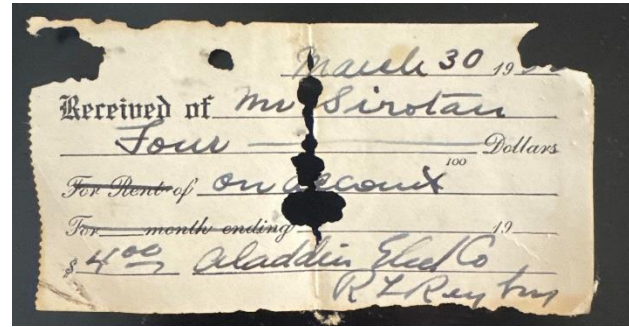 March 30 19
Received of Mr Sirotan
Four Dollars
100
For Rent of on account
For month ending 19
$ 4.00 Aladdin Elect Co
R L